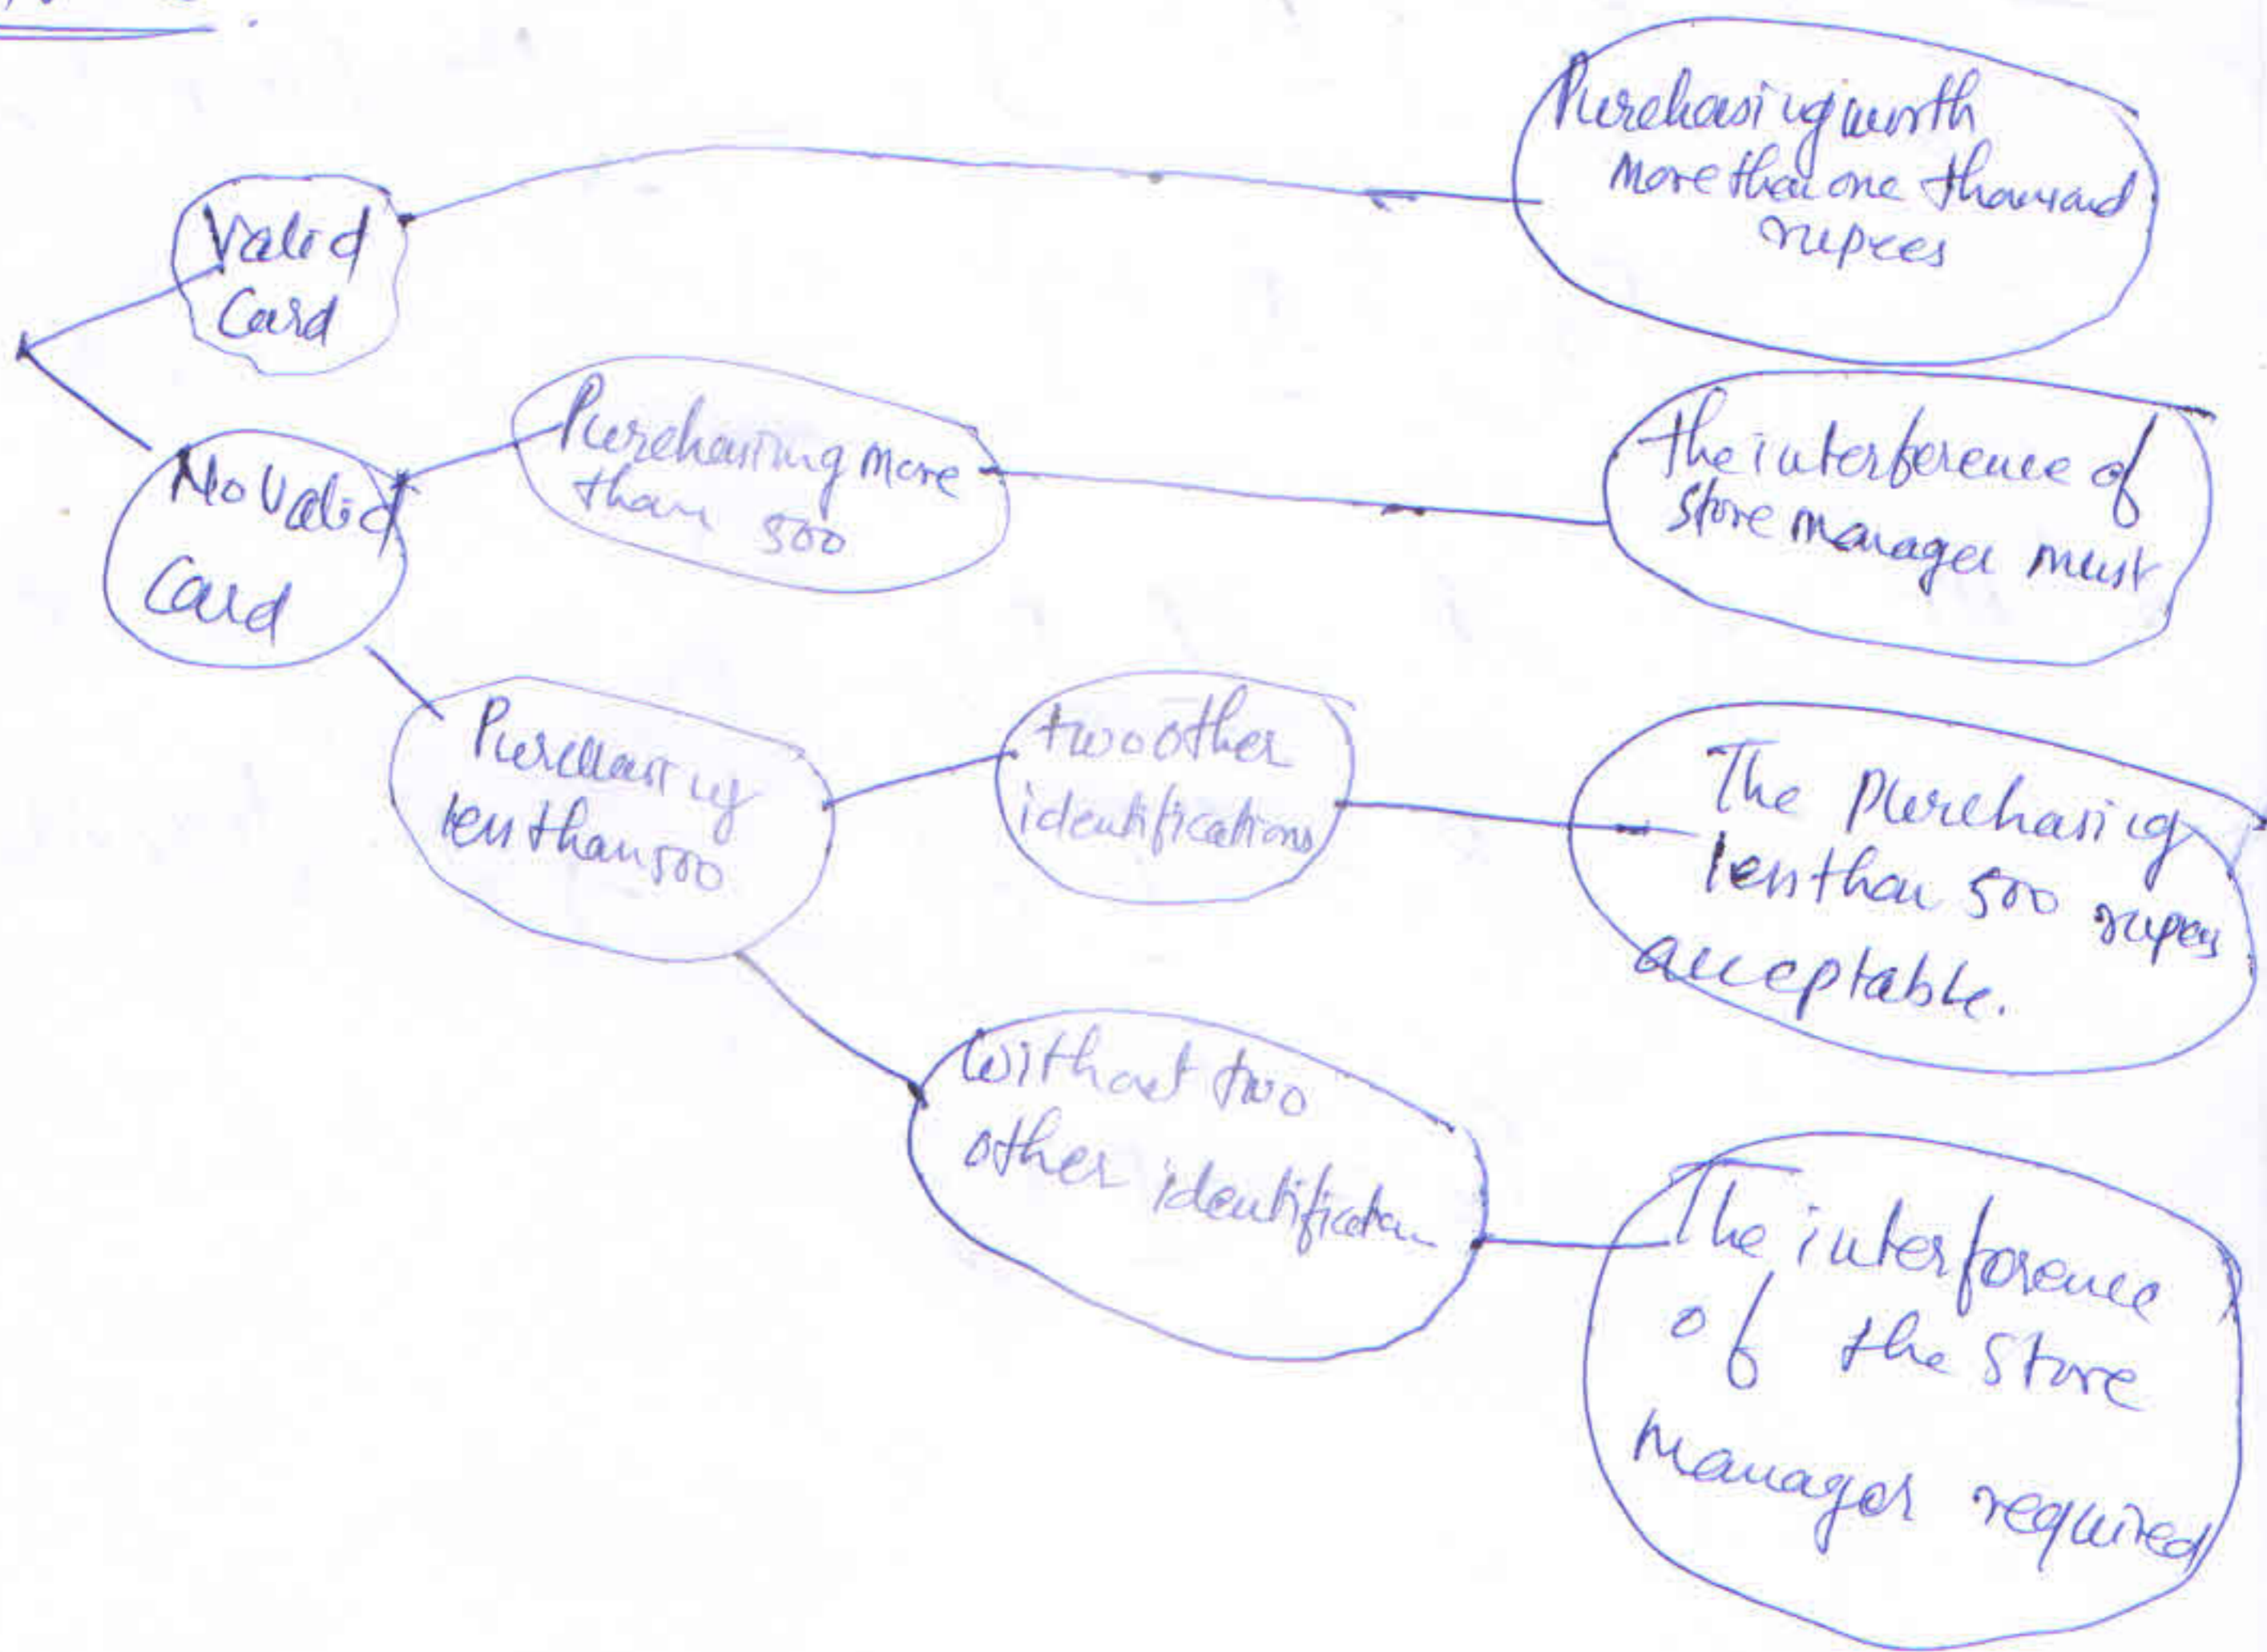 Valid
Card
Purchasing worth
more than one thousand
rupees
No Valid
Card
Purchasing more
than 500
the interference of
store manager must
Purchasing
less than 500
two other
identifications
The purchasing
less than 500 rupees
acceptable.
Without two
other identification
The interference
of the store
manager required